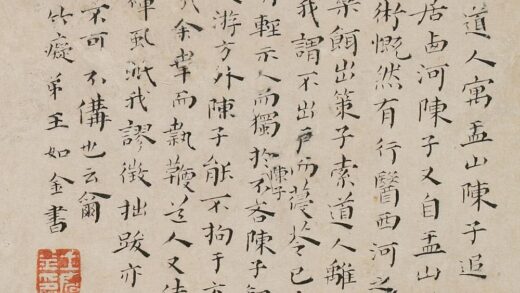 道人寓盂山陳子追
居西河陳子又自盂山
術慨然有行醫西河之
出策子索道人離
我謂不出戶而蓡苓已
輕示人而獨於陳子不吝陳子
游方外陳子能不拘于
余聿而執鞭道人又
虱眎我謬徵拙跋亦
不可不備也云爾
竹癡弟王如金書